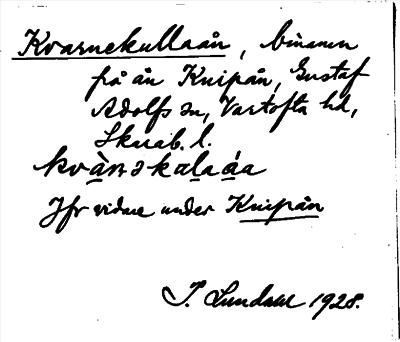 Kvarnekullaån, binamn
på ån Knipån, Gustaf
Adolfs sn, Vartofta hd,
Skarab. l.
kvà̱nəka̱la̱á̱a
Jfr vidare under Knipån
I. Lundahl 1928.